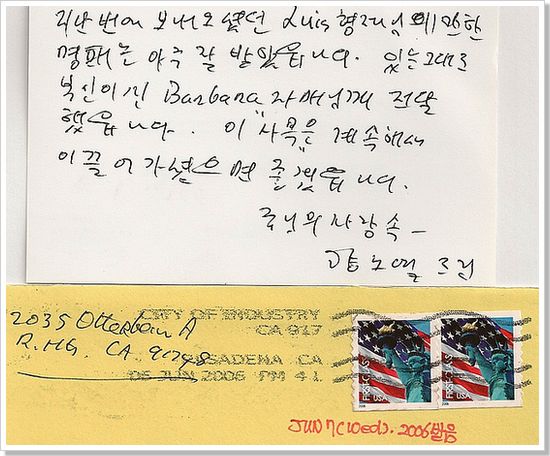 지난번에 보내오셨던 Luis 형제님에 관한
명패는 아주 잘 받았습니다. 있는 그대로
부인이신 "Barbara" 자매님께 전달
했습니다. 이 "사목"은 계속해서
이끌어 가셨으면 좋겠습니다.
주님의 사랑 속 —
드림
2035 Otterbein A
R.HG. CA 91748
CITY OF INDUSTRY
CA 917
PASADENA CA
05 JUN 2006 PM 4 L
FIRST-CLASS
USA
2006
FIRST-CLASS
USA
2006
JUN 7 (Wed). 2006 받음